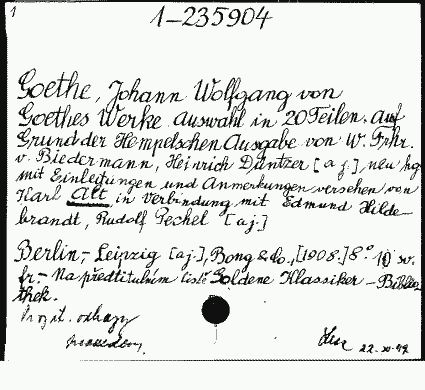 1
1-235904
Goethe, Johann Wolfgang von
Goethes Werke Auswahl in 20 Teilen. Auf
Grund der Hempelschen Ausgabe von W. Frhr.
v. Biedermann, Heinrich Düntzer [a j.], neu hg
mit Einleitungen und Anmerkungen versehen von
Karl Alt in Verbindung mit Edmund Hilde-
brandt, Rudolf Pechel [a j.]
Berlin,- Leipzig [a j.], Bong & Co., [1908.] 8° 10 sv.
fr.- Na předtitulním listě Goldene Klassiker - Biblio-
thek.
22-XI-49